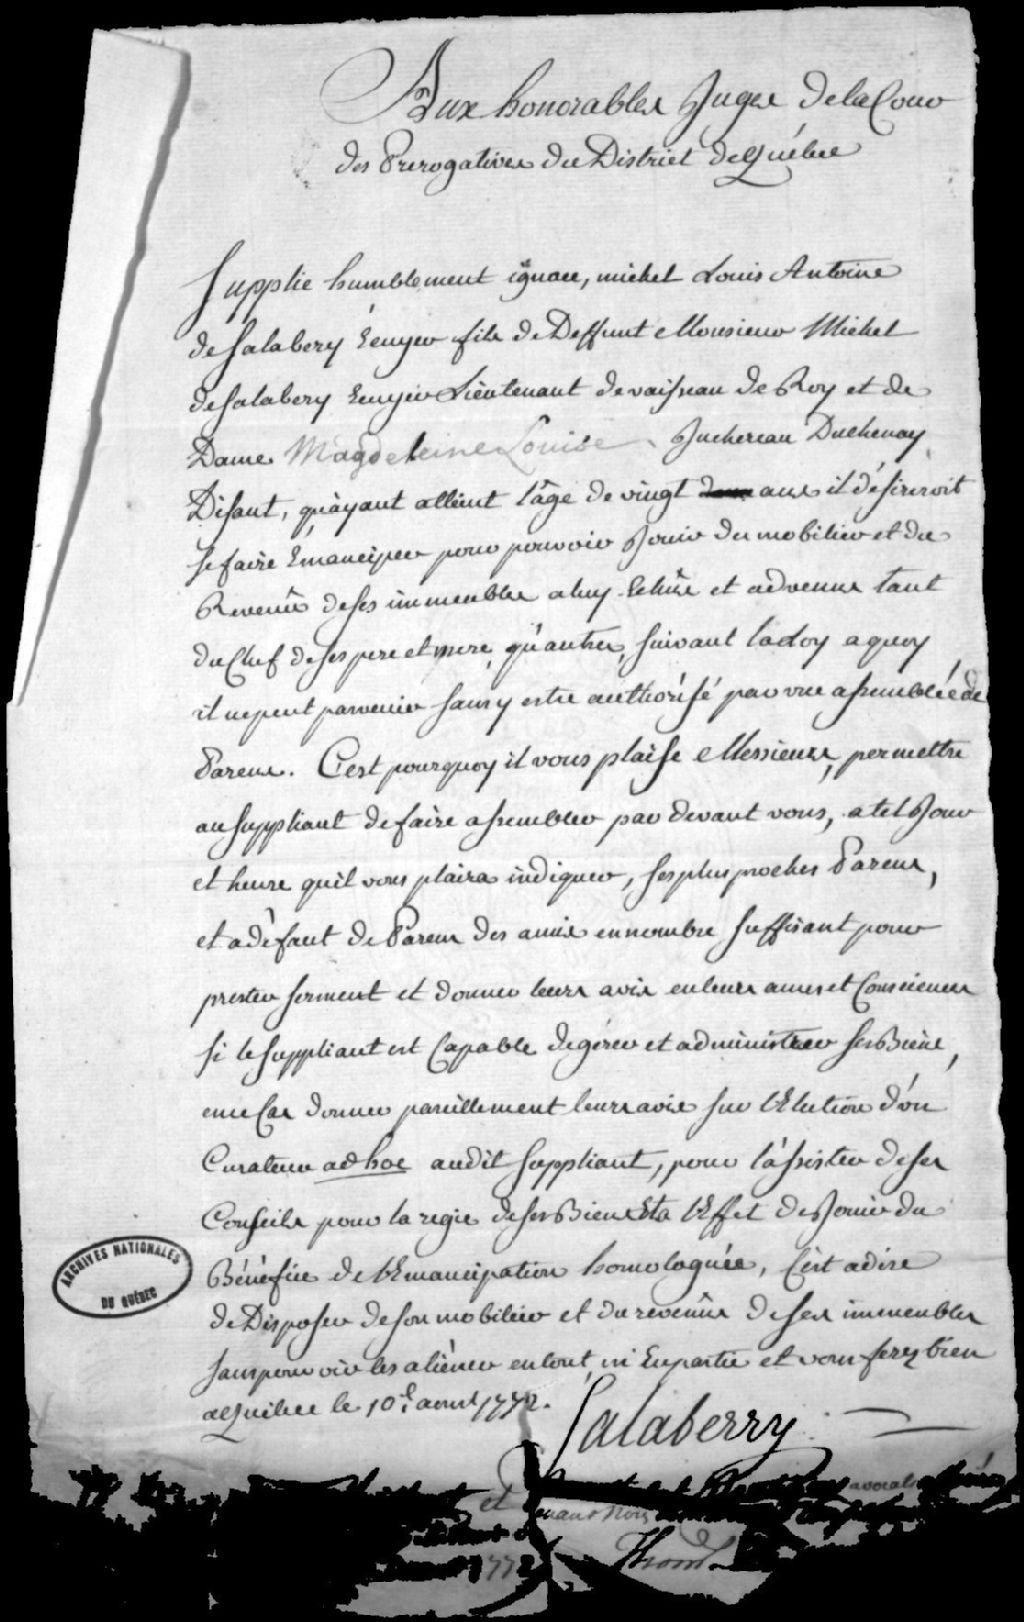 Aux honorables Juges de la Cour
des Prerogatives du District de Québec
Supplie humblement ignace, michel Louis Antoine
de Salabery Ecuyer fils de Deffunt Monsieur Michel
de Salabery Ecuyer Lieutenant de vaisseau de Roy et de
Dame Magdeleine Louise Juchereau Duchenay
Disant, qu'ayant atteint l'âge de vingt ans il désireroit
se faire Emanciper pour pouvoir Jouir du mobilier et du
Revenus de ses immeubles a luy Echus et advenus tant
du Chef de ses pere et mere, qu'autres, suivant la Loy a quoy
il ne peut parvenir sans y estre authorisé par une assemblée de
Parens. C'est pourquoy il vous plaise Messieurs, permettre
au suppliant de faire assembler par devant vous, a tel Jour
et heure qu'il vous plaira indiquer, ses plus proches Parens,
et a défaut de Parens des amis en nombre suffisant pour
prester serment et donner leurs avis en leurs ames et Consciences
si le suppliant est Capable de gérer et administrer ses Biens,
en ce Cas donner pareillement leurs avis sur l'Election d'un
Curateur ad hoc audit suppliant, pour l'assister de ses
Conseils pour la regie de ses Biens Et a l'Effet de Jouir du
Bénéfice de l'Emancipation homologuée, C'est a dire
de Disposer de son mobilier et du revenus de ses immeubles
sans pouvoir les aliéner en tout, ni En partie et vous ferez bien
a Québec le 10e aoust 1772.
Salaberry
avocats
et
nous
1772
ARCHIVES NATIONALES
DU QUÉBEC